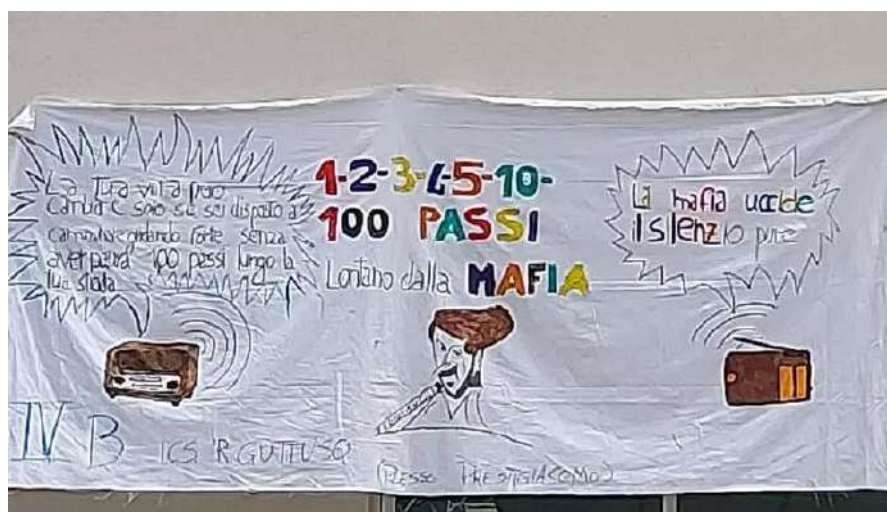 La tua vita può
cambiare solo se sei disposto a
camminare gridando forte senza
aver paura 100 passi lungo la
tua strada
1-2-3-4-5-10-
100 PASSI
Lontano dalla MAFIA
La mafia uccide
il silenzio pure
IV B ICS "R. GUTTUSO
(PLESSO PRESTIGIACOMO)